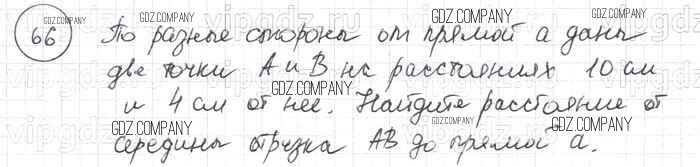 GDZ.COMPANY
GDZ.COMPANY GDZ.COMPANY
66 По разные стороны от прямой а даны
две точки А и В на расстояниях 10 см
GDZ.COMPANY
и 4 см от нее. Найдите расстояние от
GDZ.COMPANY GDZ.COMPANY
середины отрезка АВ до прямой а.
GDZ.COMPANY